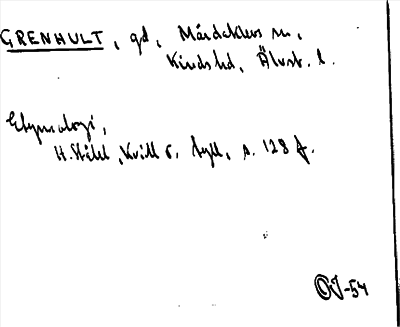 GRENHULT, gd, Mårdaklevs sn,
Kinds hd, Älvsb. l.
Etymologi,
H. Ståhl, Kvill o. tyll, s. 128 f.
OJ-54